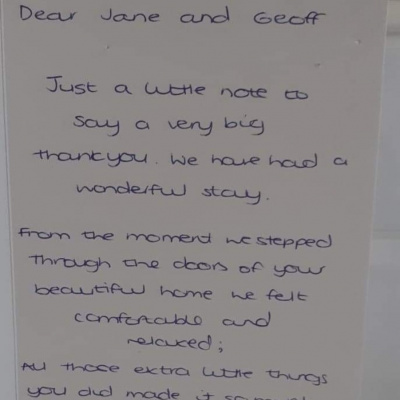 Dear Jane and Geoff
Just a little note to
say a very big
thankyou. We have had a
wonderful stay.
From the moment we stepped
through the doors of your
beautiful home we felt
comfortable and
relaxed;
All those extra little things
you did made it so